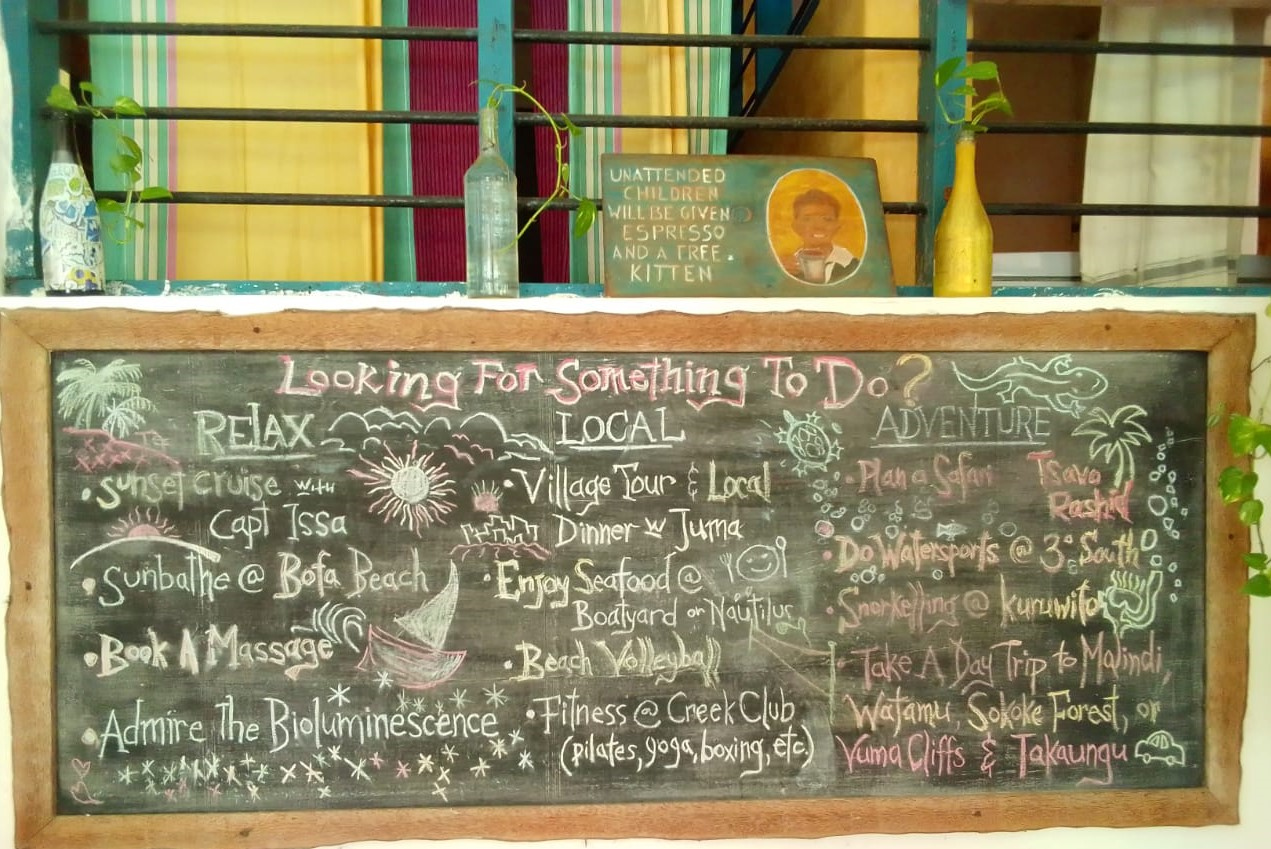 UNATTENDED
CHILDREN
WILL BE GIVEN
ESPRESSO
AND A FREE
KITTEN
Looking For Something To Do?
RELAX
• Sunset cruise with
Capt Issa
• Sunbathe @ Bofa Beach
• Book A Massage
• Admire The Bioluminescence
LOCAL
• Village Tour & Local
Dinner w Juma
• Enjoy Seafood @
Boatyard or Nautilus
• Beach Volleyball
• Fitness @ Creek Club
(pilates, yoga, boxing, etc.)
ADVENTURE
• Plan a Safari Tsava
Rashid
• Do Watersports @ 3° South
• Snorkelling @ Kuruwito
• Take A Day Trip to Malindi,
Watamu, Sokoke Forest, or
Vuma Cliffs & Takaungu